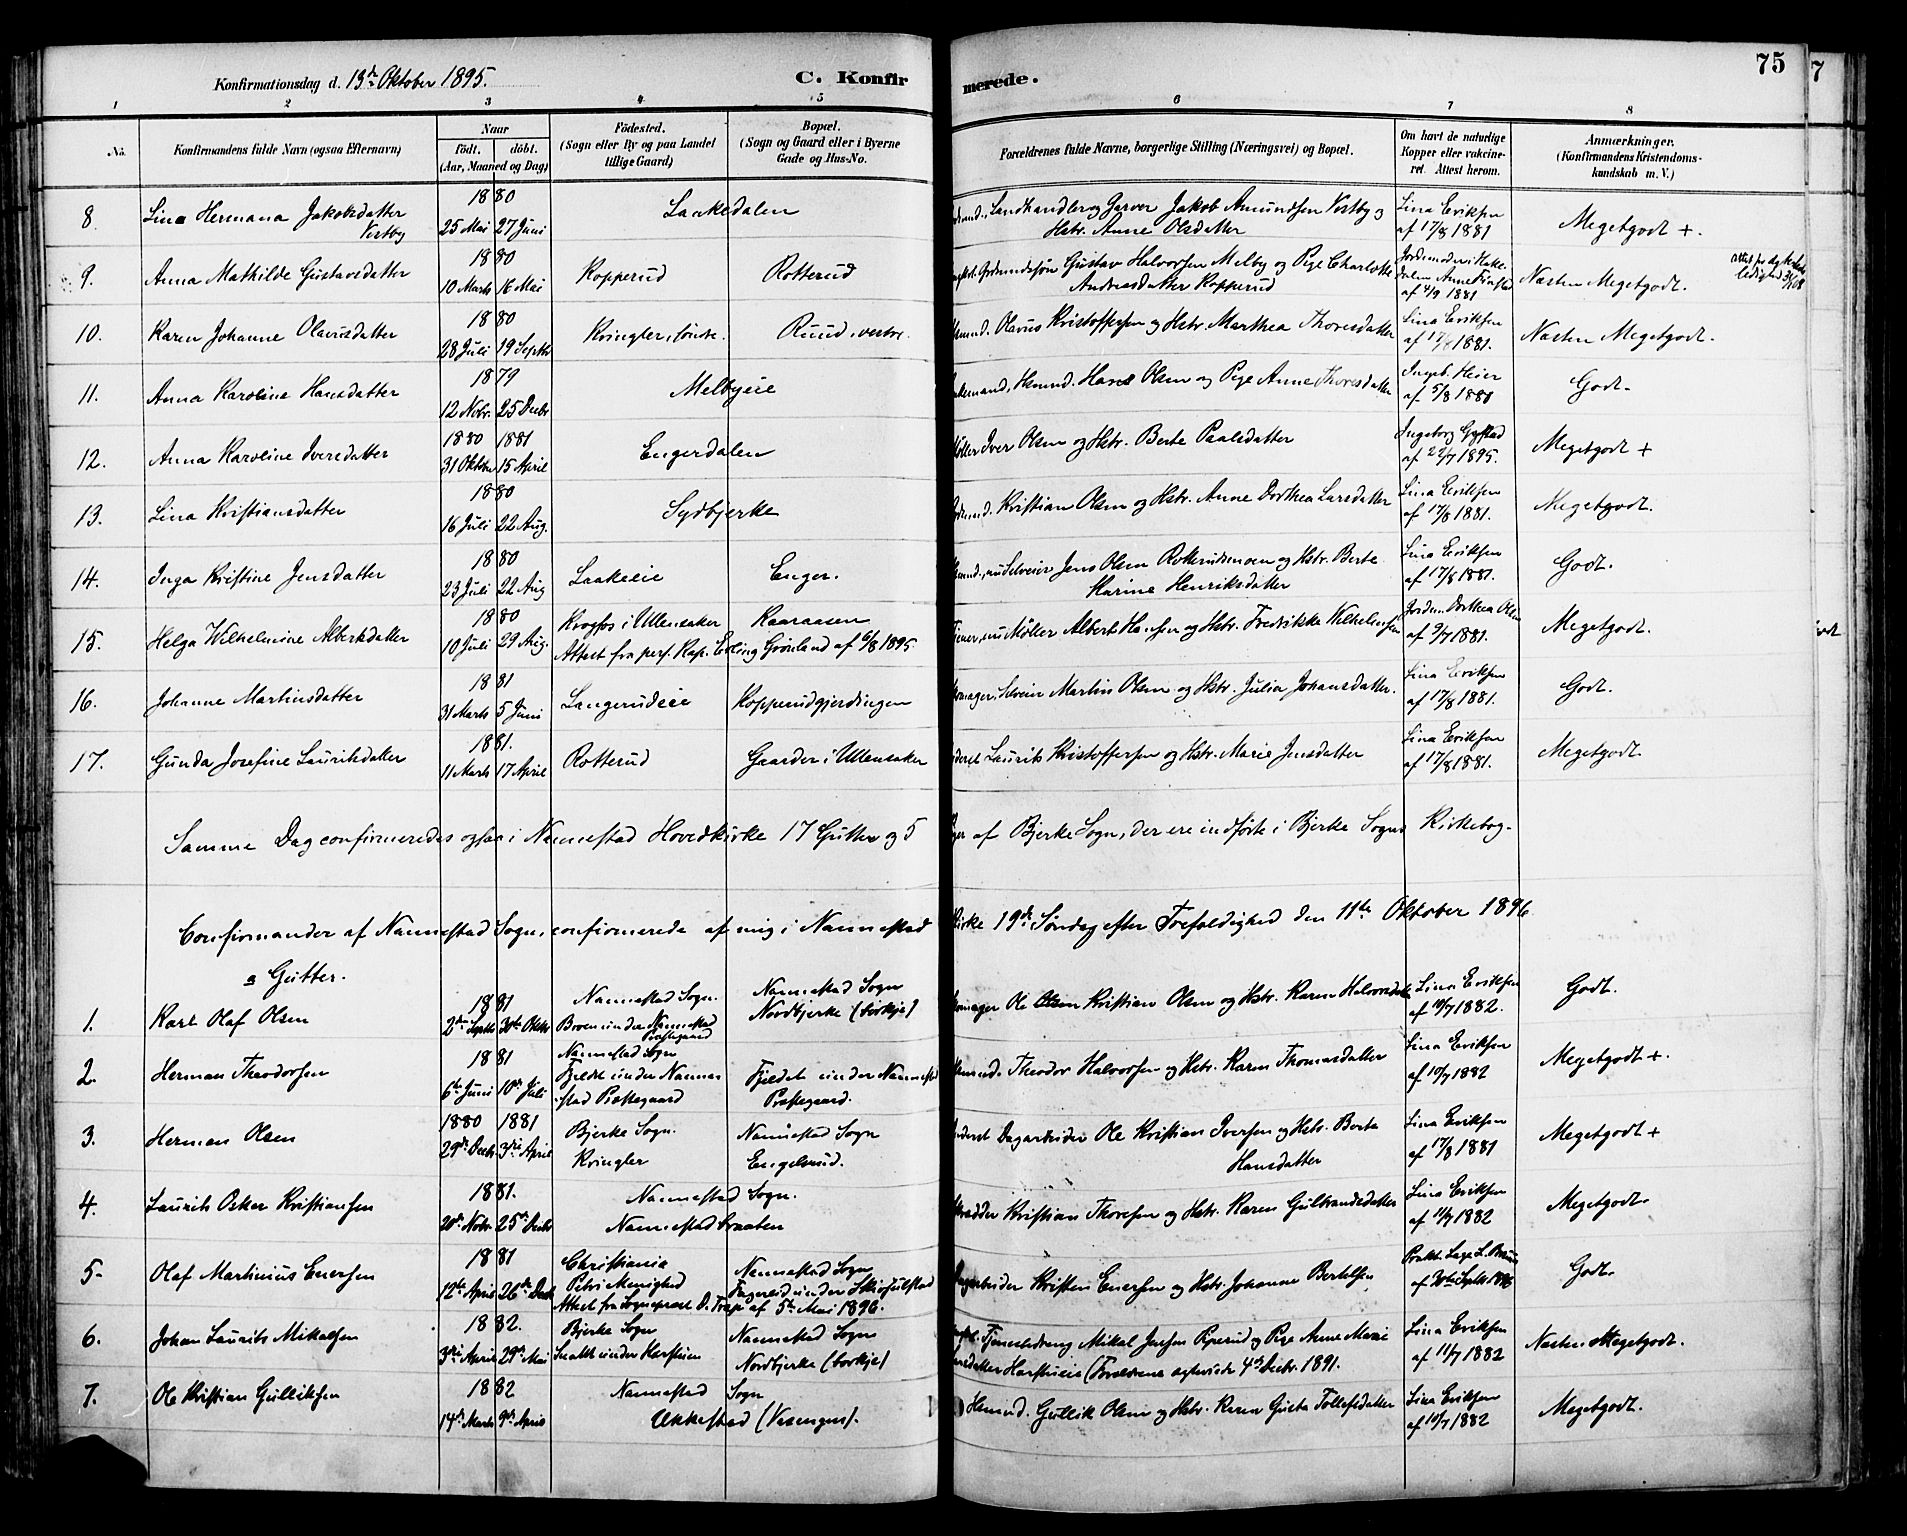 Konfirmationsdag d. 13de Oktober 1895.
C. Konfirmerede.
75
1 2 3 4 5 6 7 8
No. Konfirmandens fulde Navn (ogsaa Efternavn) Naar födt. döbt. (Aar, Maaned og Dag) Födested. (Sogn eller By og paa Landet tillige Gaard) Bopæl. (Sogn og Gaard eller i Byerne Gade og Hus-No. Forældrenes fulde Navne, borgerlige Stilling (Næringsvei) og Bopæl. Om havt de naturlige Kopper eller vakcineret. Attest herom. Anmærkninger. (Konfirmandens Kristendomskundskab m. V.)
8. Lina Hermana Jakobsdatter Vestby 1880 25 Mai 27 Juni Laakedalen Landhandler og Garver Jakob Amundsen Vestby og Hstr. Anne Olsdatter Lina Eriksen af 17/8 1881 Megetgodt +.
9. Anna Mathilde Gustavsdatter 1880 10 Marts 16 Mai Kopperud Rotterud Gustav Halvorsen Melby og Pige Charlotte Andreasdatter Kopperud af 4/9 1881 Næsten Megetgodt.
10. Karen Johanne Olavusdatter 1880 28 Juli 19 Septbr Kringler, söndre. Ruud, vestre. Olavus Kristoffersen og Hstr. Marthea Thoresdatter Lina Eriksen af 17/8 1881. Næsten Megetgodt.
11. Anna Karoline Hansdatter 1879 12 Nobr. 25 Decbr Melbyeie Hans Olsen og Pige Anne Thoresdatter Ingeb. Heier af 5/8 1880 Godt.
12. Anna Karoline Iversdatter 1880 1881 31 Oktbr 15 April Engerdalen Møller Iver Olsen og Hstr. Berte Paalsdatter Ingeborg Gystad af 22/7 1895. Megetgodt +
13. Lina Kristiansdatter 1880 16 Juli 22 Aug. Sydbjerke Kristian Olsen og Hstr. Anne Dorthea Larsdatter Lina Eriksen af 17/8 1881. Megetgodt.
14. Inga Kristine Jensdatter 1880 23 Juli 22 Aug Laakeeie Enger. nu Selveier Jens Olsen Rotterudmoen og Hstr. Berte Marine Henriksdatter Lina Eriksen af 17/8 1881. Godt.
15. Helga Wilhelmine Albertsdatter 1880 10 Juli 29 Aug. Krogfos i Ullensaker Kaaraasen Attest fra pers. Kap. Erling Grønland af 6/8 1895. nu Møller Albert Hansen og Hstr. Fredrikke Wilhelmsen Jordm. Dorthea Olsen af 9/7 1881. Megetgodt.
16. Johanne Martinsdatter 1881 31 Marts 5 Juni Langerudeie Kopperudgjerdingen Selveier Martin Olsen og Hstr. Julia Johansdatter. Lina Eriksen af 17/8 1881. Godt.
17. Gunda Josefine Lauritsdatter 1881. 11 Marts 17 April Rotterud Gaarder i Ullensaker Laurits Kristoffersen og Hstr. Marie Jensdatter Lina Eriksen af 17/8 1881. Megetgodt.
Samme Dag confirmeredes ogsaa i Nannestad Hovedkirke 17 Gutter og 5 af Bjerke Sogn, der ere indförte i Bjerke Sogns Kirkebog.
Confirmander af Nannestad Sogn, confirmerede af mig i Nannestad Kirke 19de Søndag efter Trefoldighed den 11te Oktober 1896
a Gutter.
1. Karl Olaf Olsen 1881 2den Septbr 30te Oktbr Nannestad Sogn. Broen under Nannestad Præstegaard Nannestad Sogn Nordbjerke Ole Kristian Olsen og Hstr. Karen Halvorsdatter Lina Eriksen af 10/7 1882. Godt.
2. Herman Theodorsen 1881 6te Juni 10de Juli Nannestad Sogn Fjeldet under Nannestad Præstegaard Fjeldet under Nannestad Præstegaard. Theodor Halvorsen og Hstr. Karen Thomasdatter Lina Eriksen af 10/7 1882 Megetgodt +.
3. Herman Olsen 1880 1881 29de Decbr. 3die April Bjerke Sogn. Kringler Nannestad Sogn Engelsrud. Dagarbeider Ole Kristian Iversen og Hstr. Berte Hansdatter Lina Eriksen af 17/8 1881 Megetgodt +
4. Laurits Oskar Kristiansen 1881. 20de Nobr. 25de Decbr Nannestad Sogn. Nannestadbraaten Kristian Thoresen og Hstr. Karen Gulbrandsdatter Lina Eriksen af 11/7 1882 Megetgodt.
5. Olaf Martinius Enersen 1881 12te April 26de Decbr Christiania Petri Menighed Nannestad Sogn Attest fra Sogneprest af 5te Mai 1896. Kristen Enersen og Hstr. Johanne Bertelsen Godt.
6. Johan Laurits Mikalsen 1882. 3die April 29de Mai Bjerke Sogn Nannestad Sogn Nordbjerke Mikal Jensen og Pige Anne Marie (Forældrene ægteviede 4de Decbr. 1891. Lina Eriksen af 11/7 1882 Næsten Megetgodt.
7. Ole Kristian Gulliksen 1882 14de Marts 9de April Nannestad Sogn Ukkestad (Vesengen). Gullik Olsen og Hstr. Karen Gusta Tollefsdatter Lina Eriksen af 10/7 1882 Megetgodt.